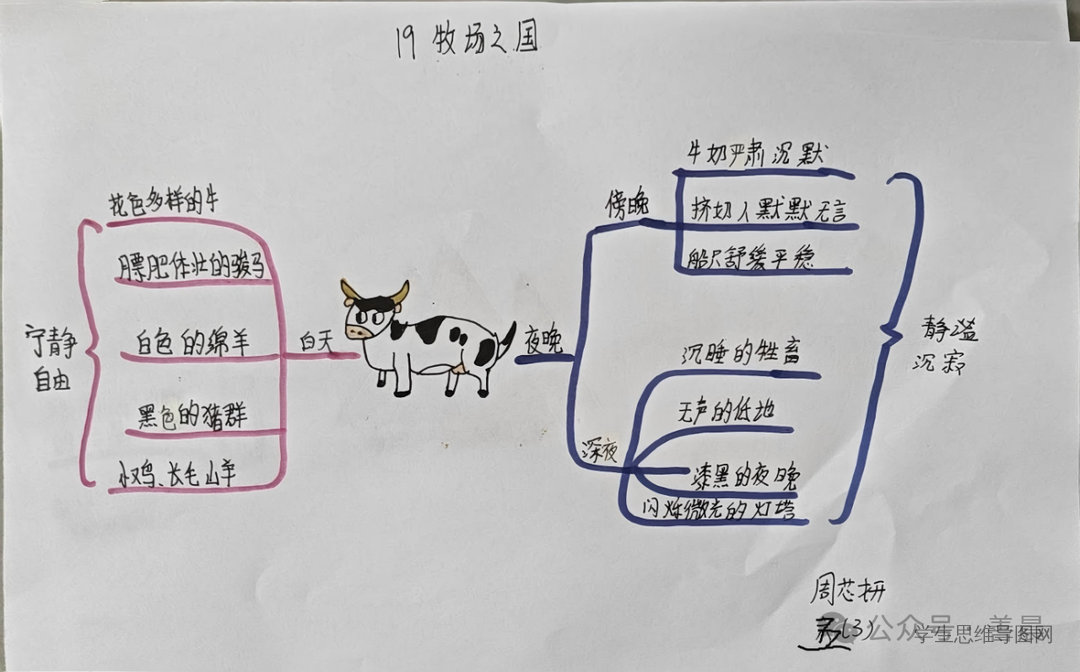 19 牧场之国
花色多样的牛
膘肥体壮的骏马
白色的绵羊
黑色的猪群
小鸡、长毛山羊
宁静
自由
白天
夜晚
傍晚
牛奶严肃沉默
挤奶人默默无言
船只舒缓平稳
深夜
沉睡的牲畜
无声的低地
漆黑的夜晚
闪烁微光的灯塔
静谧
沉寂
周芯妍
五(3)
公众号
学生思维导图网